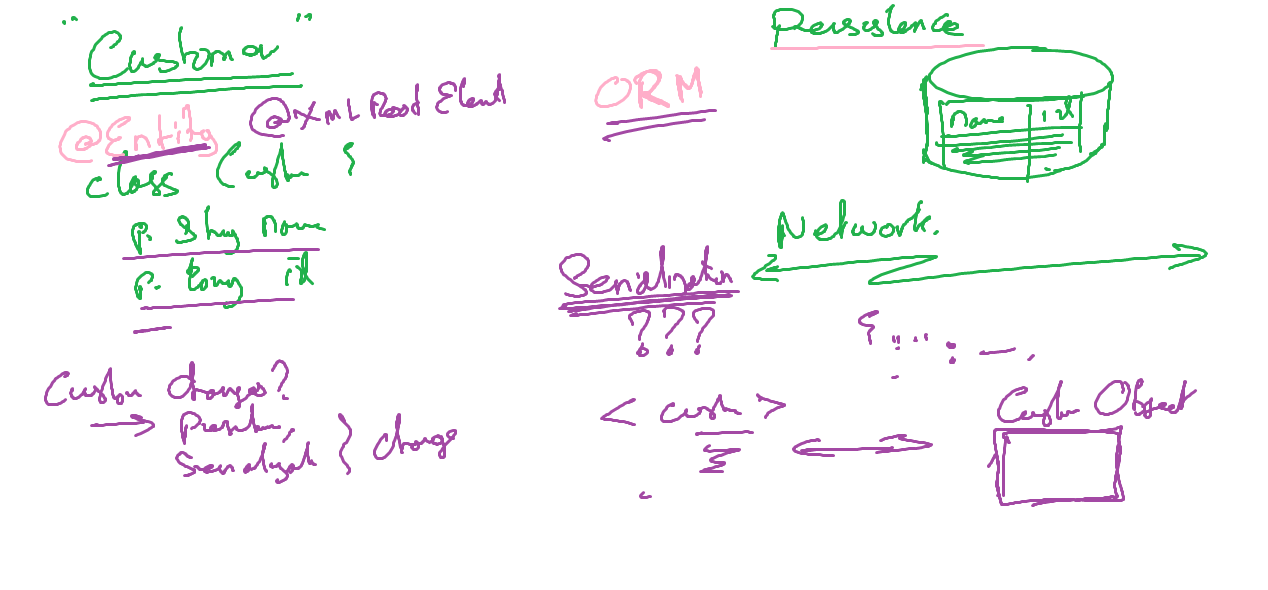 "Customer"
@Entity @XML Root Element
class Custm {
p. String name
p. Long id
Custm changes?
→ Persistn,
Serializatn } change
ORM
Persistence
name id
Network.
Serialization
???
{ " " : — ,
< custm >
Custm Object